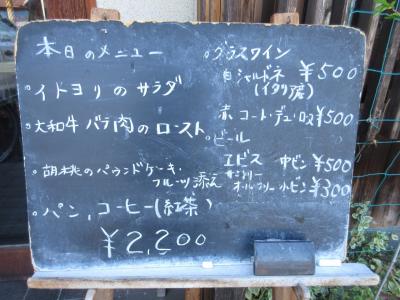 本日のメニュー
。イトヨリのサラダ
。大和牛バラ肉のロースト
。胡桃のパウンドケーキ・
フルーツ添え
。パン、コーヒー(紅茶)
¥2,200
。グラスワイン
白 シャルドネ ¥500
(イタリア産)
赤 コート・デュ・ローヌ ¥500
。ビール
エビス 中ビン ¥500
サントリー
オールフリー 小ビン ¥300